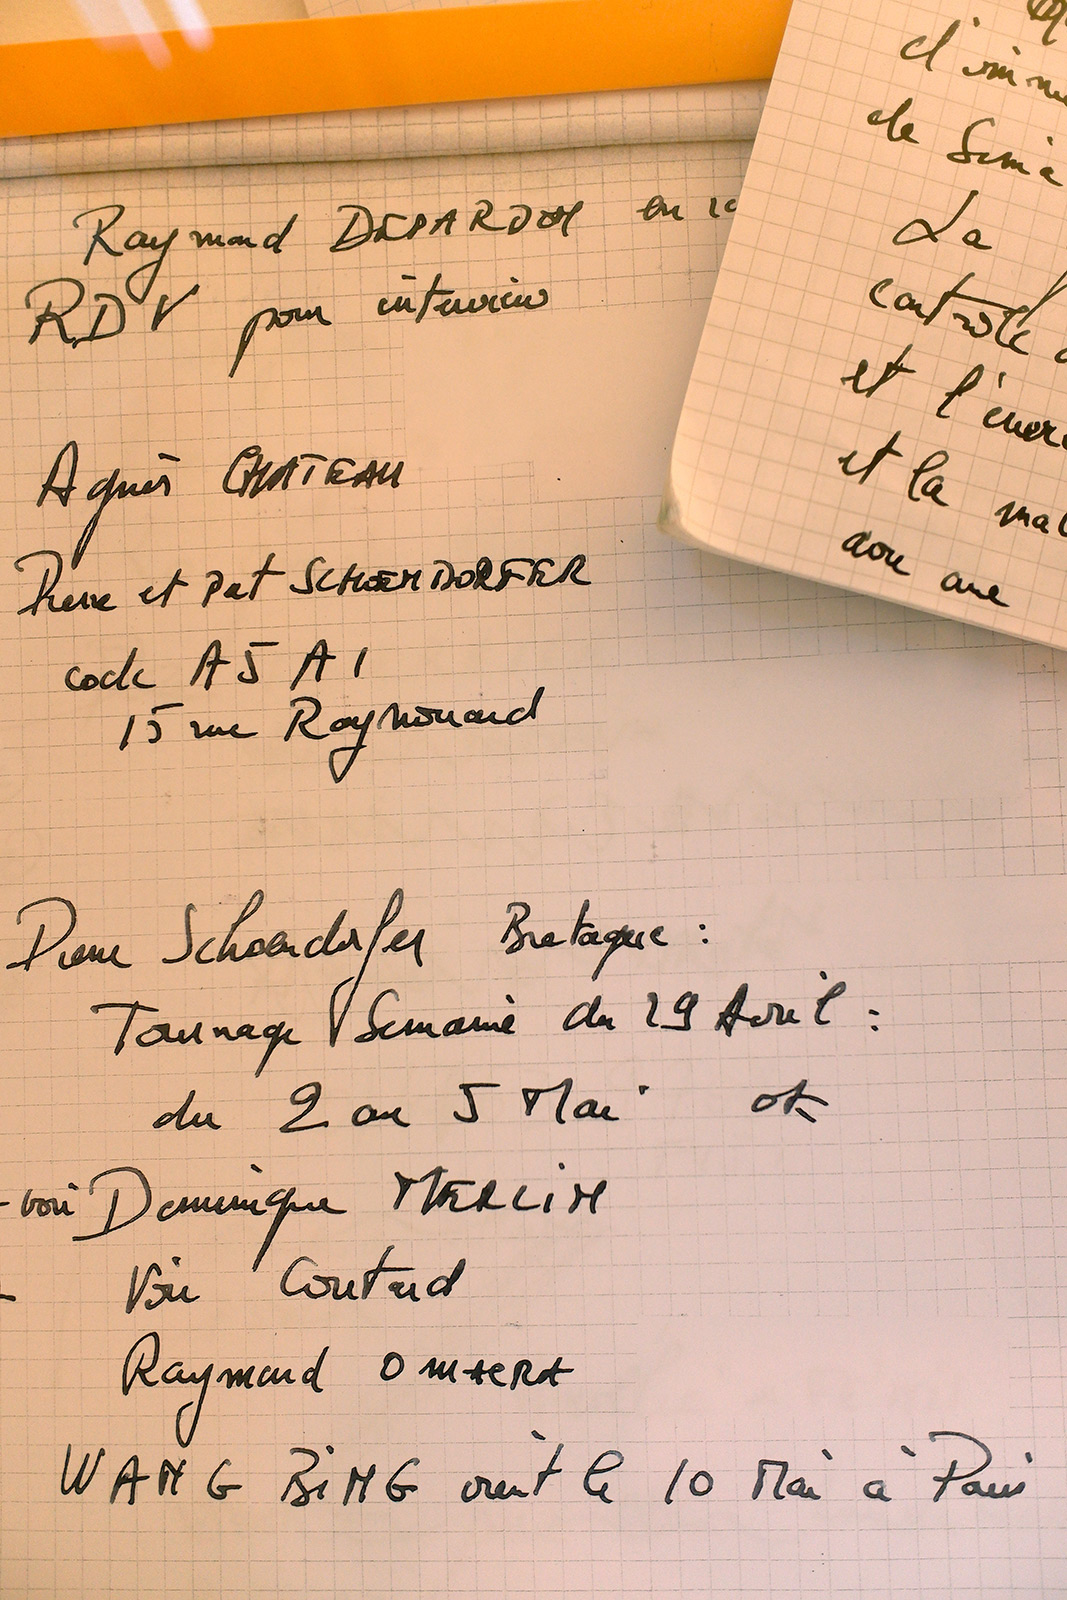 Raymond DEPARDON en
RDV pour interview
Agnès CHATEAU
Pierre et Pat SCHOENDORFER
code A5 A1
15 rue Raynouard
Pierre Schoendorfer Bretagne :
Tournage Semaine du 29 Avril :
du 2 au 5 Mai ok
- voir Dominique MERLIN
- Voir Coutard
Raymond
WANG BING vient le 10 Mai à Paris
de
La
contrôle
et l'
et la